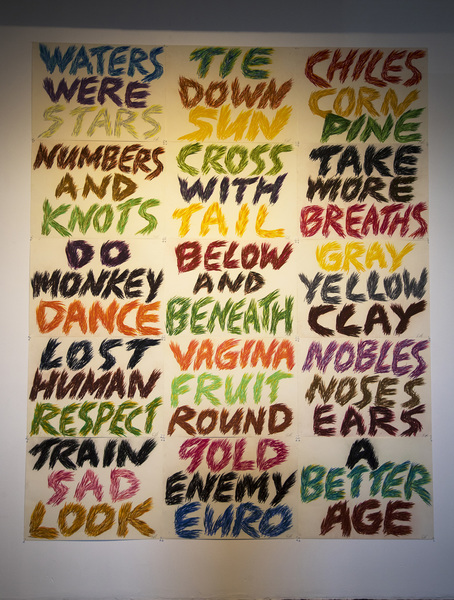 WATERS
WERE
STARS
TIE
DOWN
SUN
CHILES
CORN
PINE
NUMBERS
AND
KNOTS
CROSS
WITH
TAIL
TAKE
MORE
BREATHS
DO
MONKEY
DANCE
BELOW
AND
BENEATH
GRAY
YELLOW
CLAY
LOST
HUMAN
RESPECT
VAGINA
FRUIT
ROUND
NOBLES
NOSES
EARS
TRAIN
SAD
LOOK
GOLD
ENEMY
EURO
A
BETTER
AGE